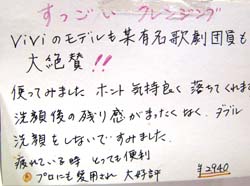 すっごーい クレンジング
ViViのモデルも某有名歌劇団員も
大絶賛!!
使ってみました ホント気持良く落ちてくれます
洗顔後の残り感がまったくなく、ダブル
洗顔をしないですみました。
疲れている時 とっても便利
プロにも愛用され 大好評
¥2940